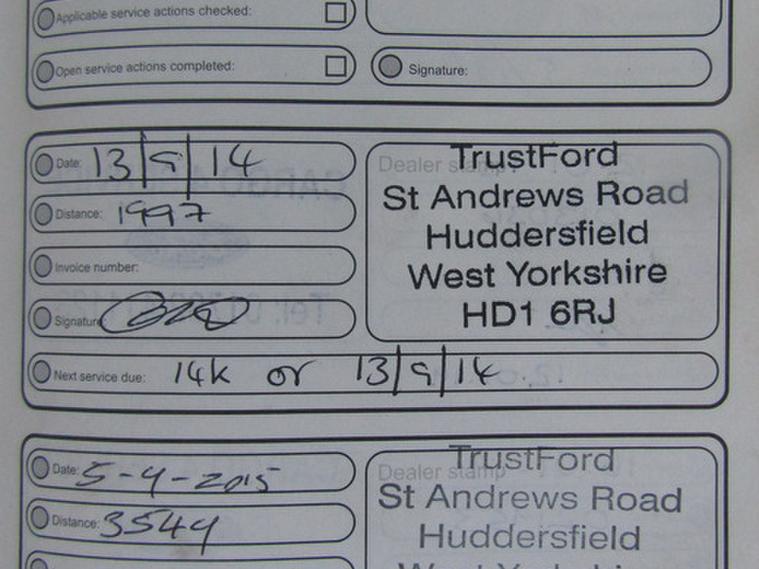 Applicable service actions checked:
Open service actions completed:
Signature:
Date: 13/9/14
Distance: 1997
Invoice number:
Signature
Next service due: 14k or 13/9/14
Dealer stamp
TrustFord
St Andrews Road
Huddersfield
West Yorkshire
HD1 6RJ
Date: 5-4-2015
Distance: 3544
Dealer stamp
TrustFord
St Andrews Road
Huddersfield
West Yorkshire